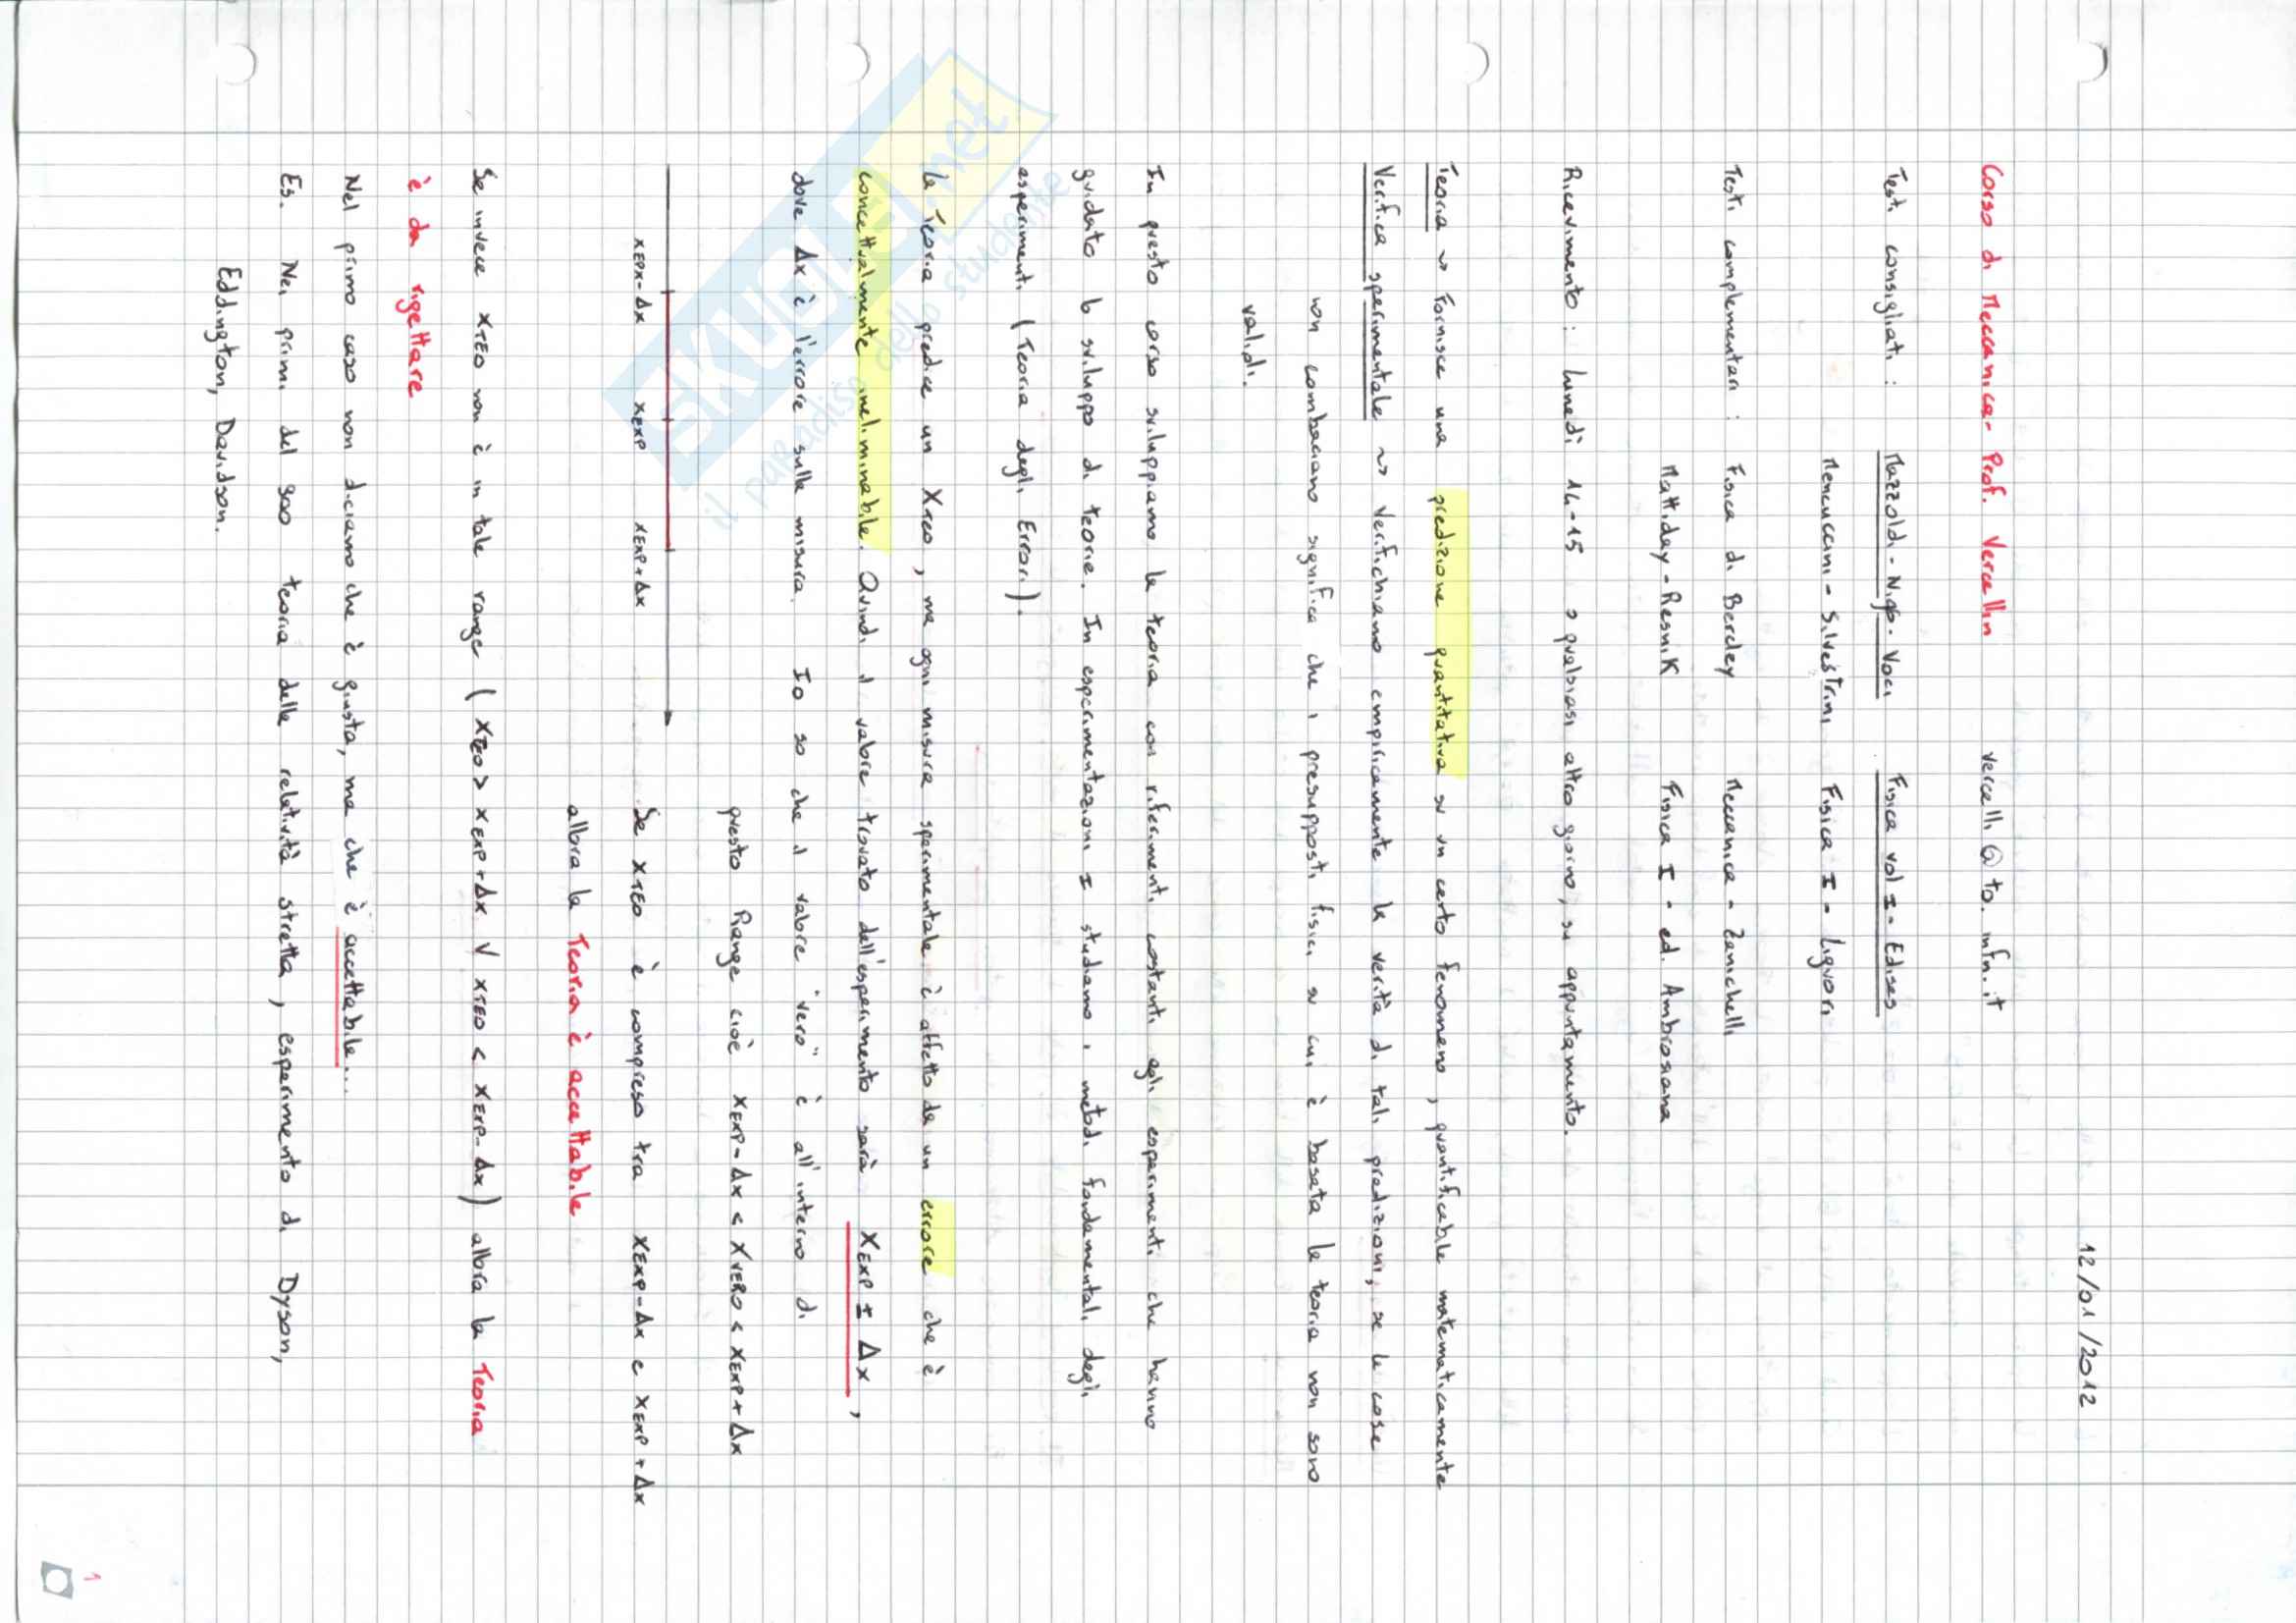 12/01/2012
Corso di Meccanica - Prof. Vercellin vercelli@to.infn.it
Testi consigliati: Mazzoldi - Nigro - Voci Fisica vol I - Edises
Mencuccini - Silvestrini Fisica I - Liguori
Testi complementari: Fisica di Berkley Meccanica - Zanichelli
Halliday - Resnik Fisica I - ed. Ambrosiana
Ricevimento: lunedì 14-15 o qualsiasi altro giorno, su appuntamento.
Teoria ~> Fornisce una predizione quantitativa su un certo fenomeno, quantificabile matematicamente
Verifica sperimentale ~> Verifichiamo empiricamente la verità di tali predizioni, se le cose
non combaciano significa che i presupposti fisici su cui è basata la teoria non sono
validi.
In questo corso sviluppiamo la teoria con riferimenti costanti agli esperimenti che hanno
guidato lo sviluppo di teorie. In esperimentazioni I studiamo i metodi fondamentali degli
esperimenti (Teoria degli Errori).
la Teoria predice un XTEO, ma ogni misura sperimentale è affetto da un errore che è
concettualmente ineliminabile. Quindi il valore trovato dell'esperimento sarà XEXP ± Δx,
dove Δx è l'errore sulla misura. Io so che il valore "vero" è all'interno di
questo Range cioè XEXP - Δx < XVERO < XEXP + Δx
XEXP - Δx XEXP XEXP + Δx Se XTEO è compreso tra XEXP - Δx e XEXP + Δx
allora la Teoria è accettabile
Se invece XTEO non è in tale range (XTEO > XEXP + Δx V XTEO < XEXP - Δx) allora la Teoria
è da rigettare
Nel primo caso non diciamo che è giusta, ma che è accettabile...
Es. Nei primi del 900 teoria della relatività stretta, esperimento di Dyson,
Eddington, Davidson.
SKUOLA.net
il paradiso dello studente
1